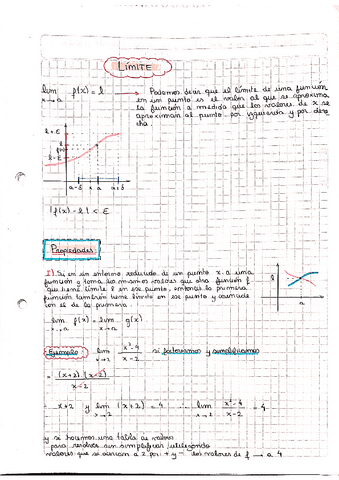 LÍMITE
lim f(x) = l → Podemos decir que el límite de una función
x→a en un punto es el valor al que se aproxima
la función a medida que los valores de x se
aproximan al punto por izquierda y por dere
cha.
l+E
l
f(x)
l-E
a-δ x a a+δ
|f(x) - l| < E
Propiedades:
I) Si en un entorno reducido de un punto x=a una
función g toma los mismos valores que otra función f
que tiene límite l en ese punto, entonces la primera
función también tiene límite en ese punto y coincide
con el de la primera
l
a
lim f(x) = lim g(x)
x→a x→a
Ejemplo: lim x²-4 si factoreamos y simplificamos
x→2 x-2
= (x+2).(x-2)
x-2
= x+2 y lim (x+2) = 4 ∴ lim x²-4 = 4
x→2 x→2 x-2
y si hacemos una tabla de valores
para resolver sin simplificar utilizando
valores que se acercan a 2 por + y - los valores de f → a 4